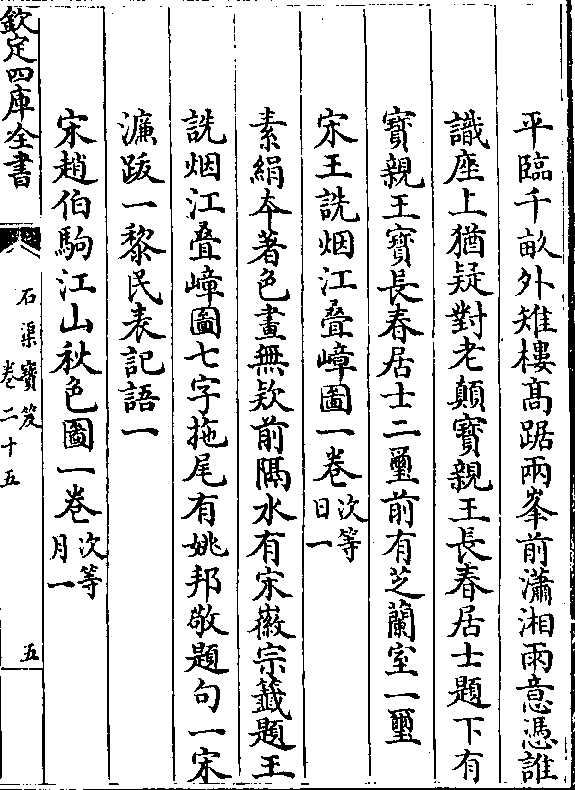 平臨千畝外雉樓髙踞兩峯前瀟湘雨意憑誰
識座上猶疑對老顛寶親王長春居士題下有
寳親王寳長春居士二璽前有芝蘭室一璽
宋王詵烟江叠嶂圖一卷次等
日一
素絹本著色畫無欵前隔水有宋徽宗籤題王
詵烟江叠嶂圖七字拖尾有姚邦敬題句一宋
濂跋一黎民表記語一
宋趙伯駒江山秋色圖一卷次等
月一
欽定四庫全書
石渠寳笈
卷二十五
五